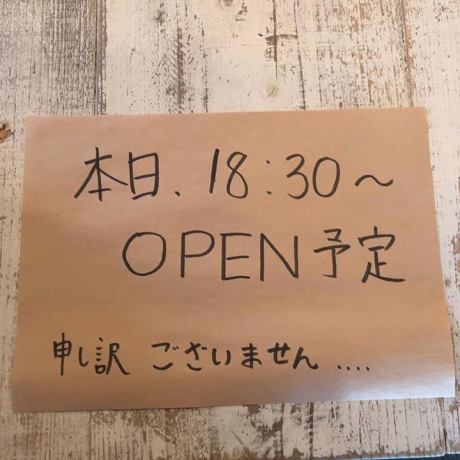 本日、18:30〜
OPEN予定
申し訳ございません....